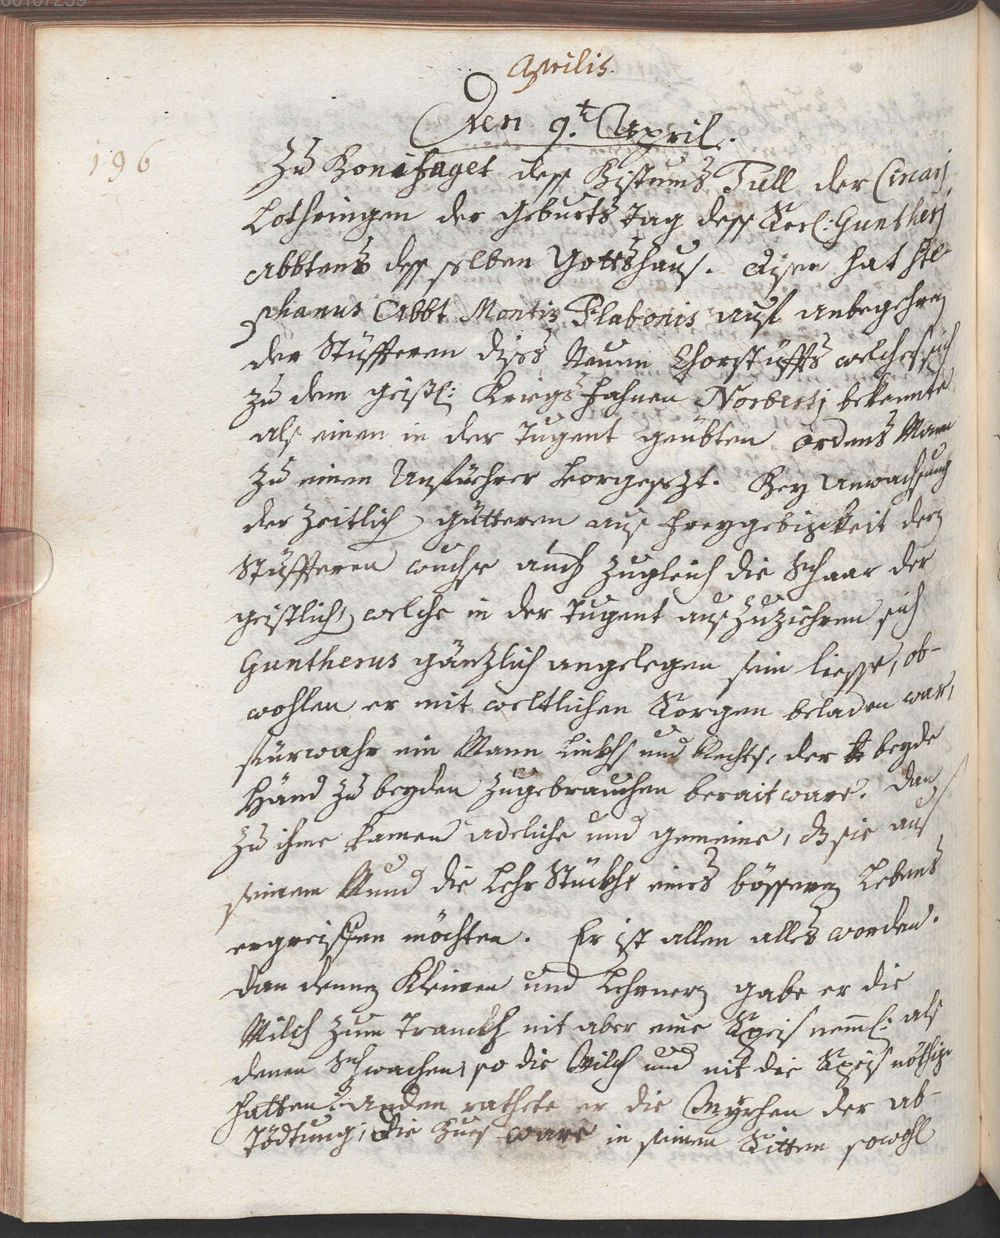 00107239
Aprilis.
Den 9.t April.
196
Zu Bonifaget dess Bistums Tull der Circarj
Lothringen der geburts Tag dess Seel: Guntherj
Abbtens desselben Gottshaus. disen hat Ste-
phanus Abbt Montis Flabonis aus anbegehren
der Stüffteren diss Neuen Chorstüffts welches sich
zu dem geistl: Kriegs Fahnen Norbertj bekennte
als einen in der Tugent geübten ordens Mann
zu einen Anführer vorgesezt. Bey Anwachsung
der zeitlich gütteren aus freygebigkeit der
Stüffteren wuchse auch zugleich die Schaar der
geistlich, welche in der Tugent auszuziehren sich
Guntherus gänzlich angelegen sein liesse, ob-
wohlen er mit weltlichen Sorgen beladen war,
fürwahr ein Mann Linkhs und Rechts, der beyde
Händ zu beyden zugebrauchen berait ware. Dan
zu ihme kamen adeliche und gemeine, das sie aus
seinem Mund die Lehr Stückhe eines bösseren Lebens
ergreiffen möchten. Er ist allen alles worden.
dan denen Kleinen und Lehrnern gabe er die
Milch zum Tranckh nit aber eine Speis neml: als
denen Schwachen, so die Milch und nit die Speis nöthig
hatten: Anden rathete er die Myrhen der ab-
tödtung; die Bues ware in seinen Sitten sowohl